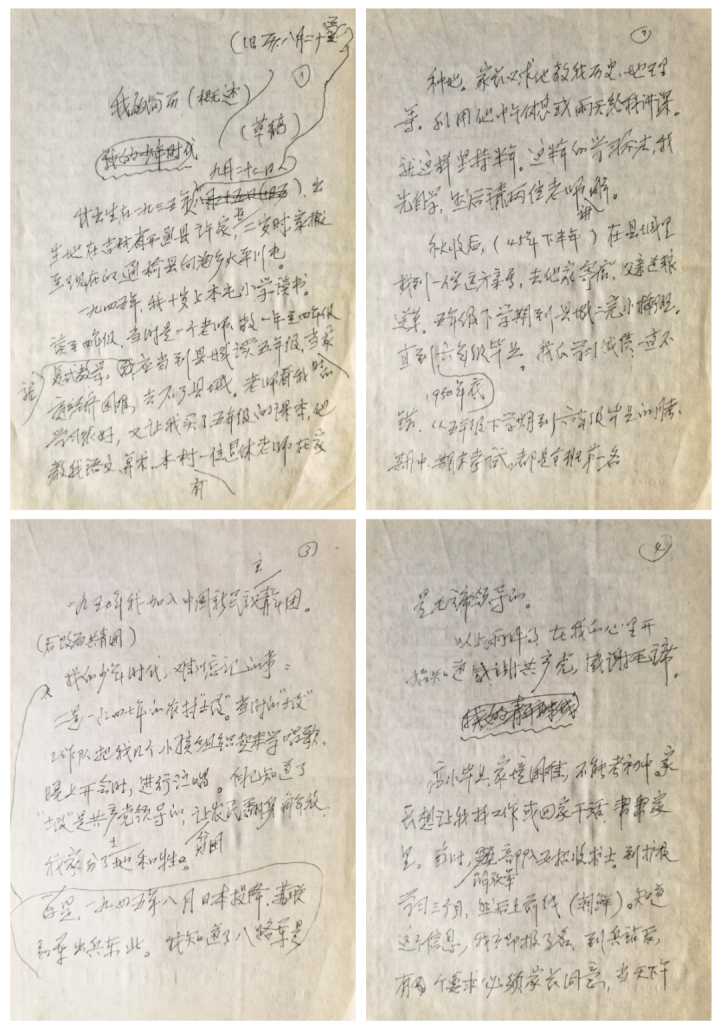 (旧历八月二十
①
我的简历(概述)
(草稿)
我的少年时代
九月二十七日
我出生在一九三五年八月十五日(旧历),出
生地在吉林省开通县许家 二岁时家搬
至现在的通榆县向海乡大平川屯。
一九四五年,我十岁上本屯小学读书。
读至四年级,当时是一个老师,教一年至四年级
复式教学。我应当到县城读五年级,当家
庭经济困难,去不了县城。老师看我
学习很好,又让我买了五年级的课本,他
教我语文、算术,本村一位 老师在家
有
②
种地。家长又求他教我历史、地理
等。利用他中午休息或雨天给我讲课。
就这样坚持半年。这半年的学习方法,我
先自学,然后请两位老师讲解。
秋收后,(45年下半年)在县城里
找到一位远方亲戚,去他家寄宿,父亲送粮
送草。五年级下学期到县城二完小插班。
直到六年级毕业。我的学习成绩一直不
1950年底
错,从五年级下学期到六年级毕业的
期中、期末考试,都是全班第一名
③
一九五〇年我加入中国新民主主义青年团。
(后改为共青团)
我的少年时代,难以忘记的事:
二是一九四七年的农村“土改”。当时的“土改”
工作队把我们几个小孩组织起来学唱歌,
晚上开会时,进行演唱。自己知道了
“土改”是共产党领导的,让农民翻身解放,
我家分了土地和牲口。
首是,一九四五年八月日本投降,苏联
红军出兵东北。我知道了八路军是
④
毛主席领导的。
以上两件事,在我的心里开
始知道感谢共产党,感谢毛主席。
我的青年时代
高小毕业,家境困难,不能考初中。家
长想让我找工作或回家干活,帮帮家
里。当时,解放军部队正招收战士,到扩
训三个月,然后上前线(朝鲜)。知道
这个信息,我立即报了名,到兵站后,
有个要求必须家长同意,当天下午